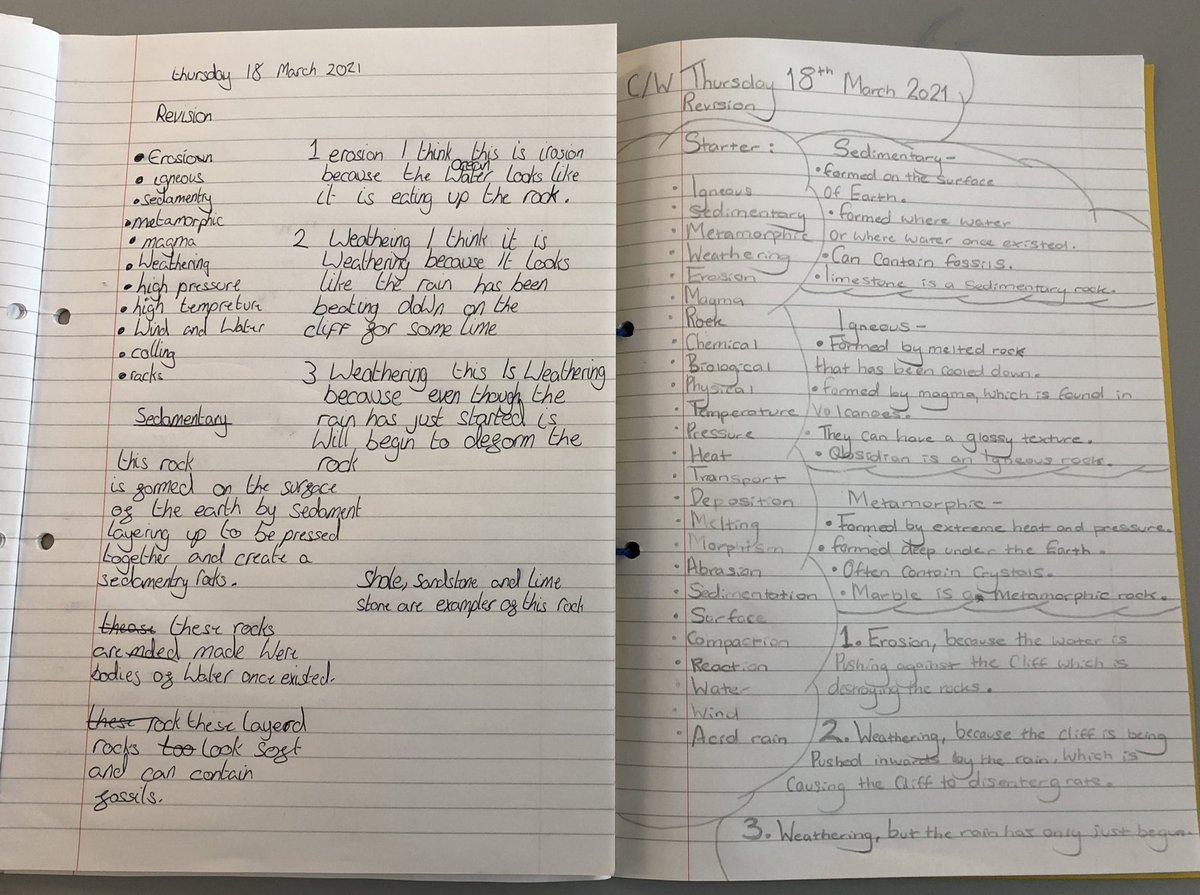 thursday 18 March 2021
Revision
• Erosiown
• igneous
• sedamentry
• metamorphic
• magma
• Weathering
• high pressure
• high tempreture
• Wind and Water
• colling
• racks
Sedamentary
this rock
is formed on the surface
of the earth by sedament
layering up to be pressed
together and create a
sedamentry rocks.
these rocks
are made Were
bodies of Water once existed.
these layerd
rocks look soft
and can contain
fossils.
1 erosion I think this is irosion
because the ocean Water looks like
it is eating up the rock.
2 Weatheing I think it is
Weathering because it looks
like the rain has been
beating down on the
cliff for some time
3 Weathering this Is Weathering
because even though the
rain has just started is
Will begin to deform the
rock
Shale, sandstone and lime
stone are exampler of this rock
C/W Thursday 18th March 2021
Revision
Starter:
• Igneous
• Sedimentary
• Metamorphic
• Weathering
• Erosion
• Magma
• Rock
• Chemical
• Biological
• Physical
• Temperature
• Pressure
• Heat
• Transport
• Deposition
• Melting
• Morphism
• Abrasion
• Sedimentation
• Surface
• Compaction
• Reaction
• Water
• Wind
• Acid rain
Sedimentary-
• formed on the surface
of Earth.
• formed where water
or where water once existed.
• Can Contain fossils.
• limestone is a Sedimentary rock.
Igneous-
• Formed by melted rock
that has been cooled down.
• formed by magma, which is found in
Volcanoes.
• They can have a glossy texture.
• Obsidian is an Igneous rock.
Metamorphic-
• Formed by extreme heat and pressure.
• formed deep under the Earth.
• Often Contain Crystals.
• Marble is a Metamorphic rock.
1. Erosion, because the water is
Pushing against the Cliff which is
destroying the rocks.
2. Weathering, because the Cliff is being
Pushed inwards by the rain, which is
Causing the Cliff to disentergrate.
3. Weathering, but the rain has only just begun.